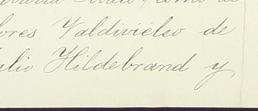 ores Valdivielso de
ulio Hildebrand y